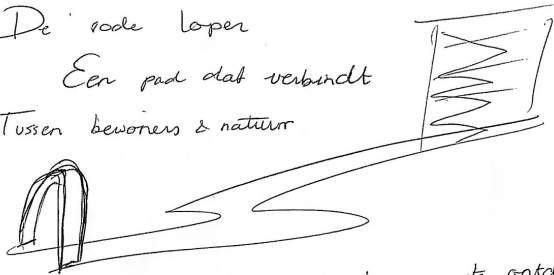 De rode loper
Een pad dat verbindt
Tussen bewoners & natuur